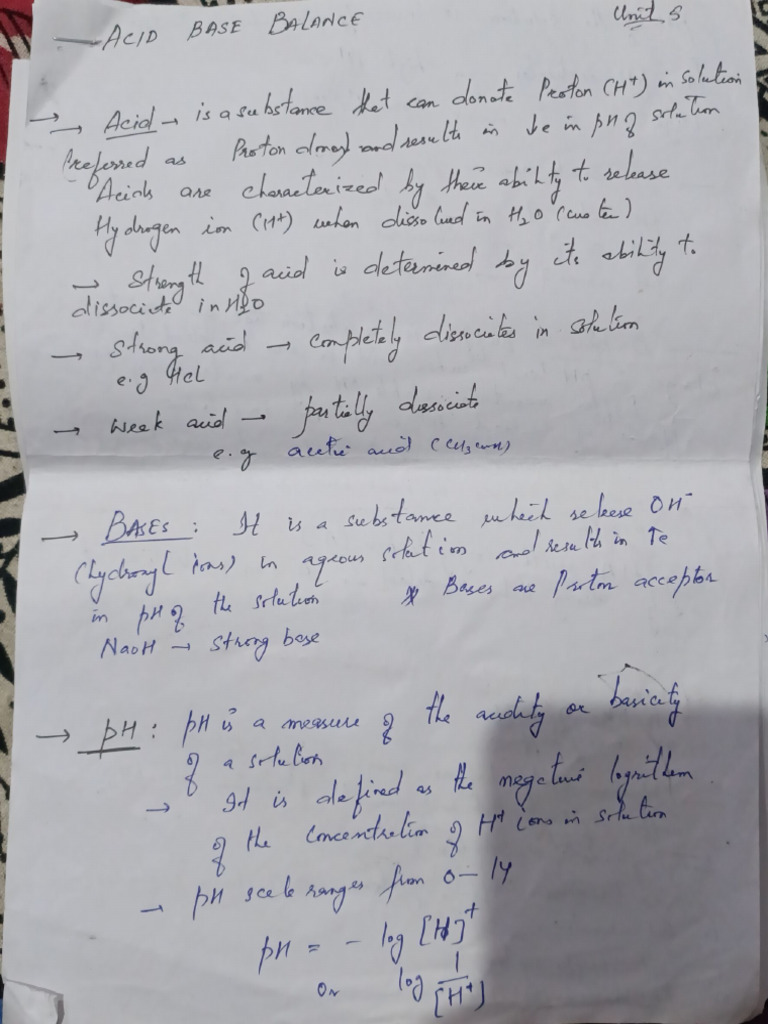 — ACID BASE BALANCE Unit 5
→ → Acid → is a substance that can donate Proton (H+) in solution
(Preferred as Proton donor) and results in ↓e in pH of solution
Acids are characterized by their ability to release
Hydrogen ion (H+) when dissolved in H2O (water)
→ Strength of acid is determined by its ability to
dissociate in H2O
→ Strong acid → Completely dissociates in solution
e.g HCL
→ Week acid → partially dissociate
e.g acetic acid (CH3COOH)
→ BASES : It is a substance which release OH-
(hydroxyl ions) in aqeous solution and results in ↑e
in pH of the solution * Bases are Proton acceptor
NaOH → Strong base
→ pH : pH is a measure of the acidity or basicity
of a solution
→ It is defined as the negative logrithem
of the concentration of H+ ions in solution
→ pH scale ranges from 0 – 14
pH = - log [H]+
Or log 1/[H+]